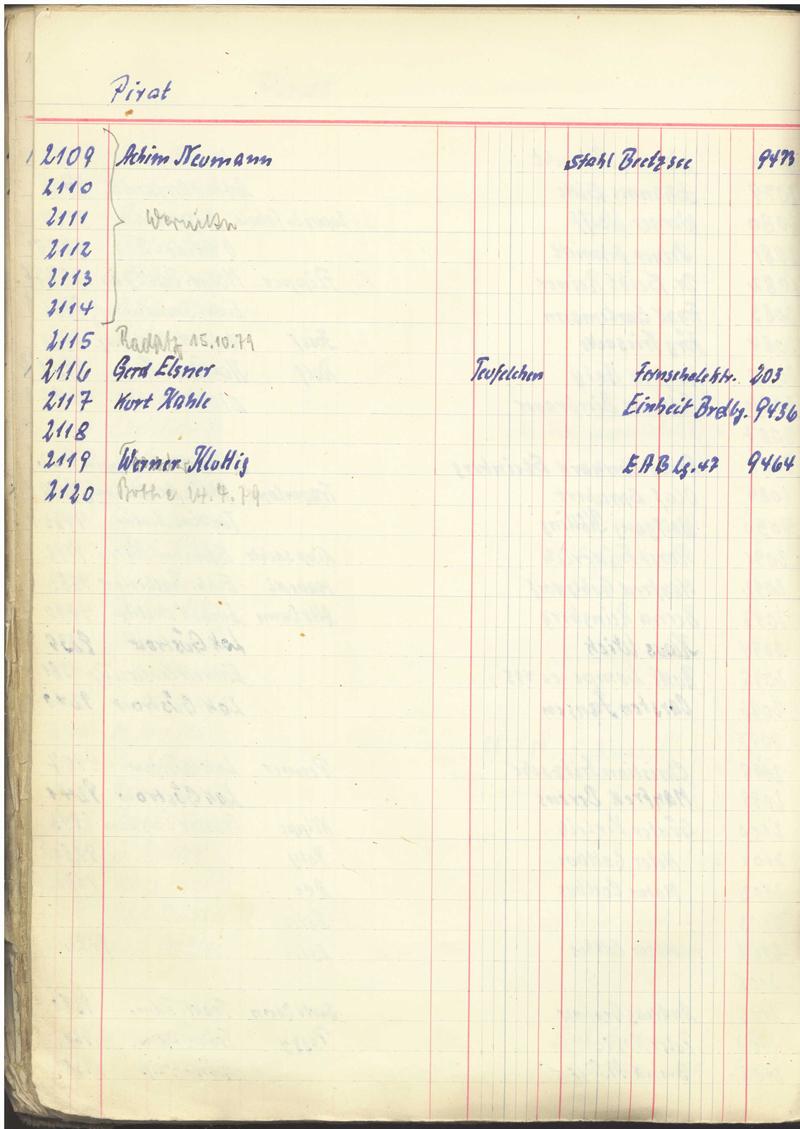 Pirat
2109 Achim Neumann Stahl Beetzsee 9473
2110
2111
2112
2113
2114
2115 15.10.79
2116 Gerd Elsner Teufelchen Fernsehelektr. 203
2117 Kurt Kahle Einheit Brdbg. 9436
2118
2119 Werner Klottig EAB Lg. 47 9464
2120 Bothe 24.7.79